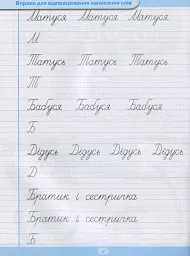 Вправи для відпрацювання написання слів
Матуся Матуся Матуся
М
Татусь Татусь Татусь
Т
Бабуся Бабуся Бабуся
Б
Дідусь Дідусь Дідусь Дідусь
Д
Братик і сестричка
Братик і сестричка
Б